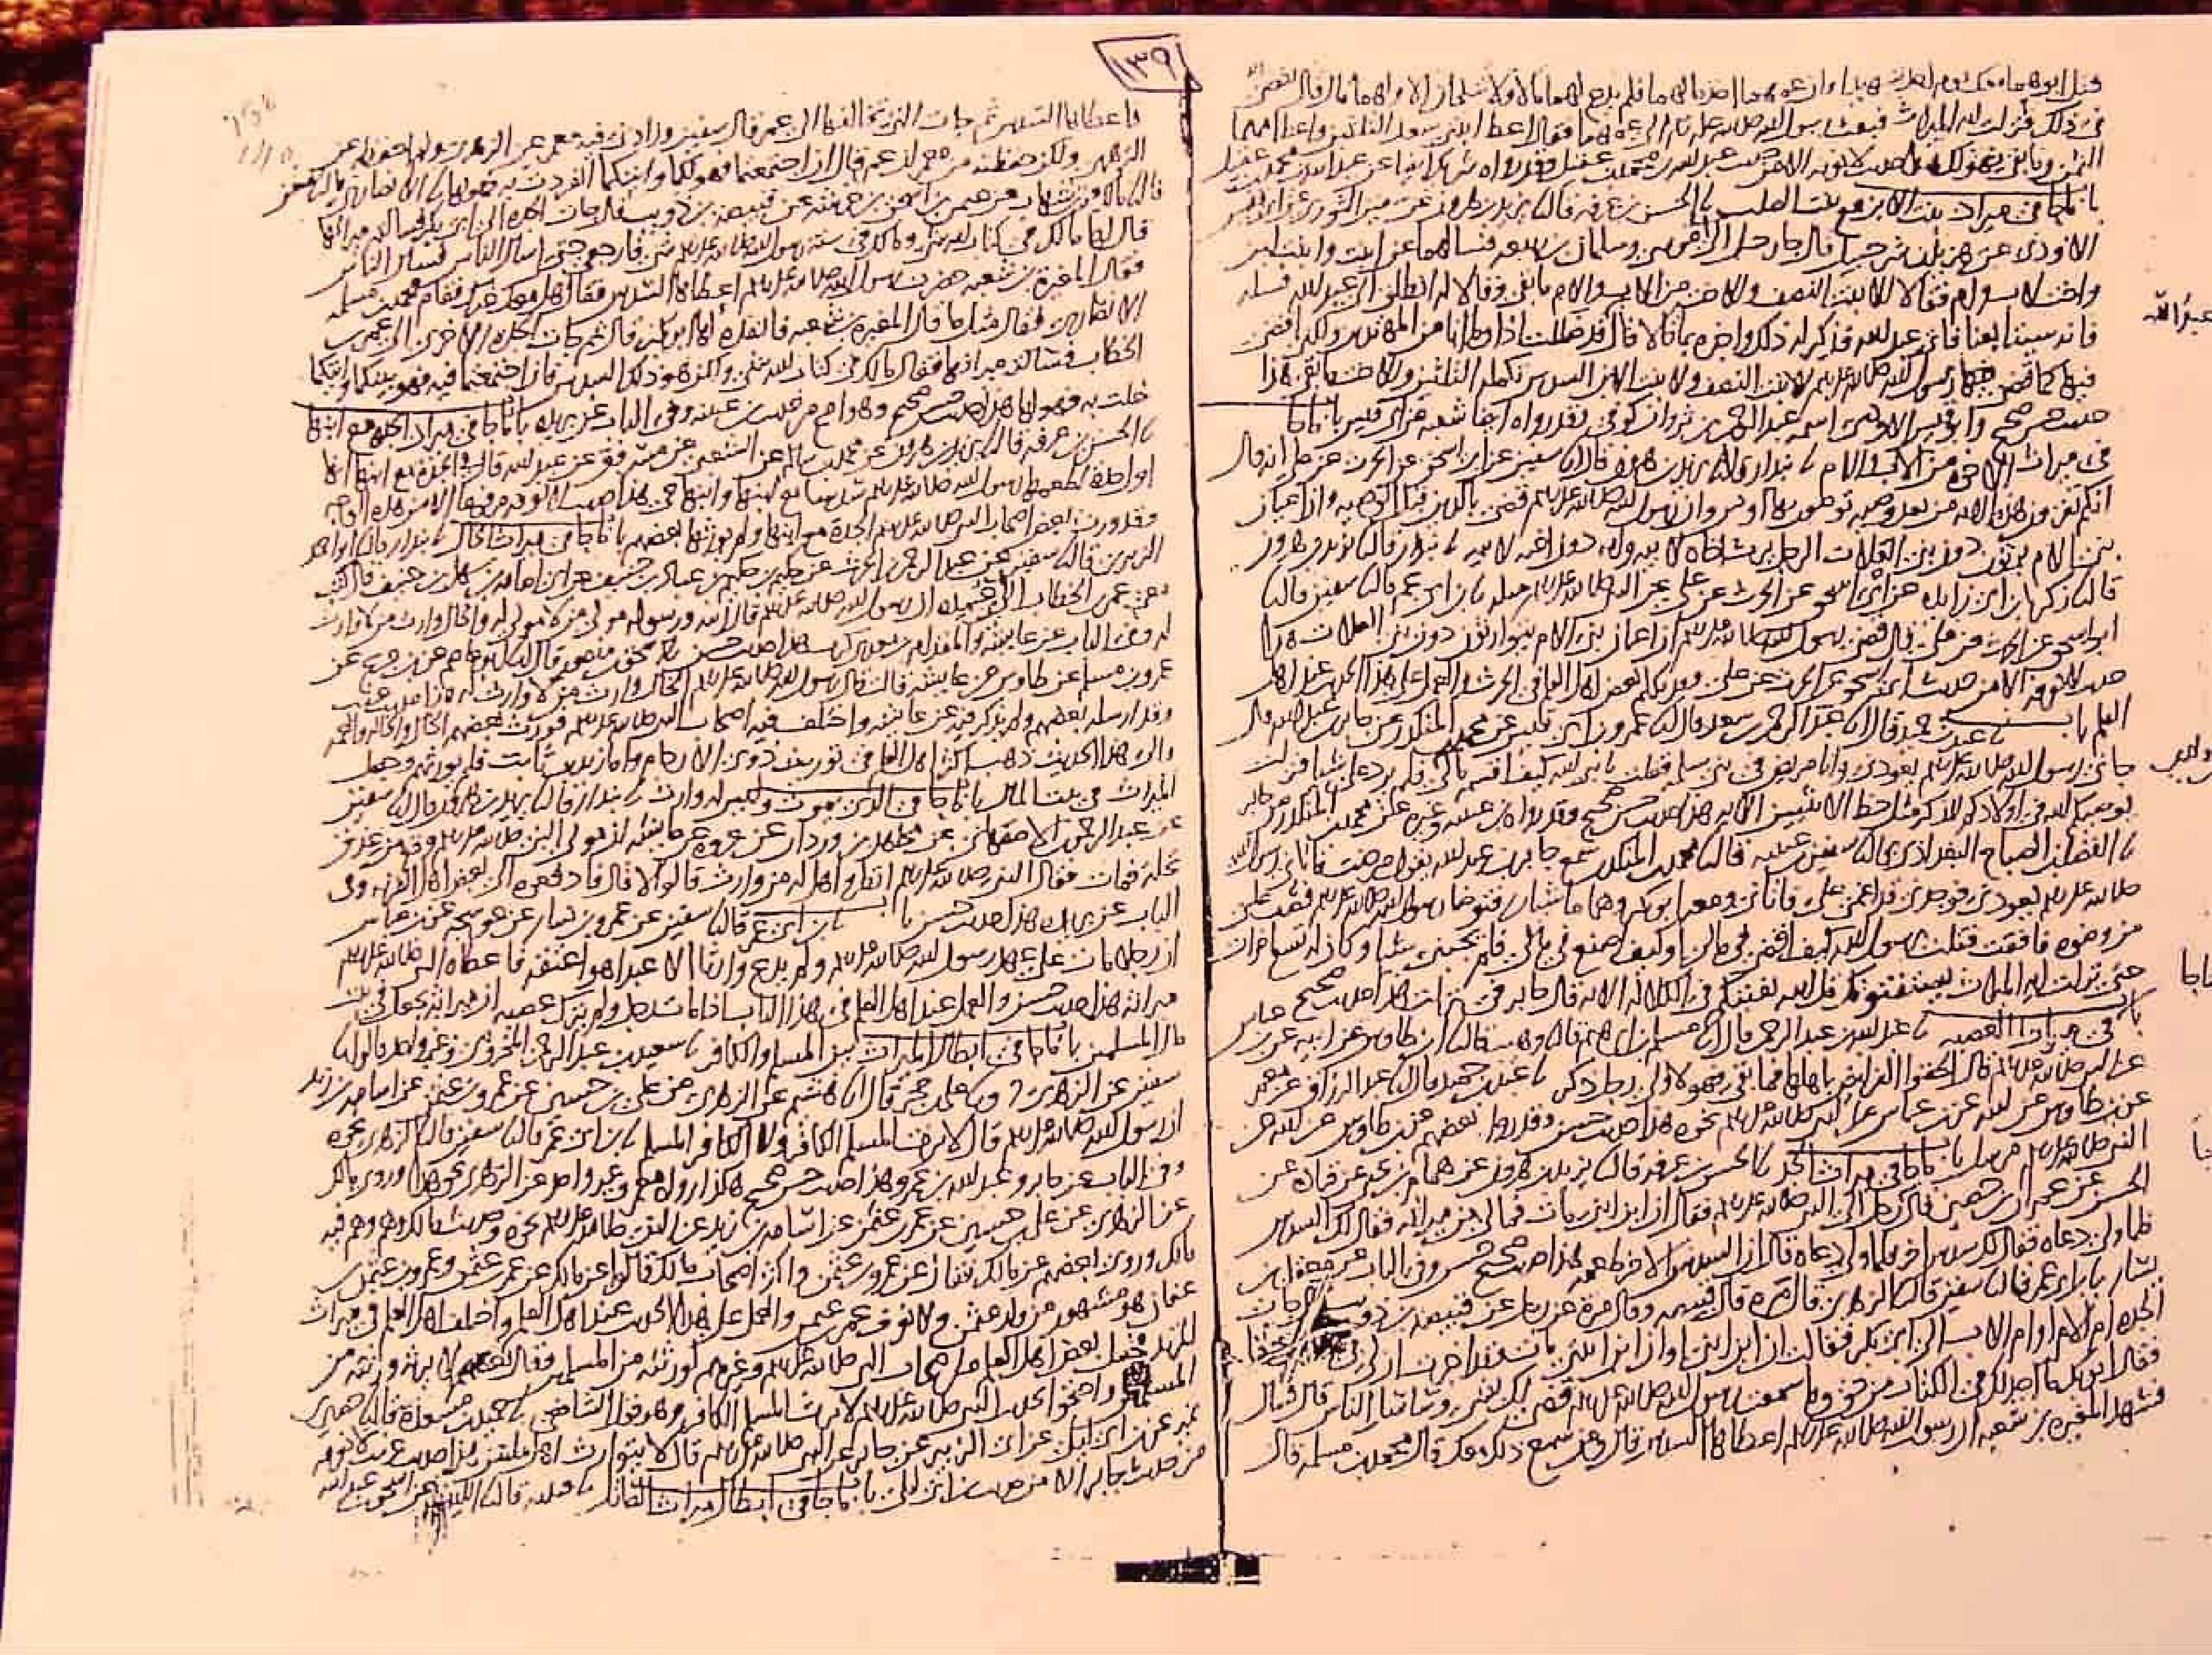 ١٣٩
قتل ابوهما معك يوم احد شهيدا وان عمهما اخذ مالهما فلم يدع لهما مالا ولا تنكحان الا ولهما مال قال يقضي الله
في ذلك فنزلت اية الميراث فبعث رسول الله صلى الله عليه وسلم الى عمهما فقال اعط ابنتي سعد الثلثين واعط امهما
الثمن وما بقي فهو لك هذا حديث لا نعرفه الا من حديث عبد الله بن محمد بن عقيل وقد رواه شريك ايضا عن عبد الله بن محمد بن عقيل
باب ما جا في ميراث بنت الابن مع بنت الصلب نا الحسن بن عرفه قال نا يزيد بن هرون عن سفين الثوري عن ابي قيس
الاودي عن هزيل بن شرحبيل قال جا رجل الى ابي موسى وسلمان بن ربيعه فسالهما عن ابنت وابنت ابن
واخت لاب وام فقالا للابنت النصف وللاخت من الاب والام ما بقي وقالا له انطلق الى عبد الله فسله
فانه سيتابعنا فاتى عبد الله فذكر له ذلك واخبره بما قالا قال قد ضللت اذا وما انا من المهتدين ولكن اقضي
فيها كما قضى فيها رسول الله صلى الله عليه وسلم للابنت النصف ولابنت الابن السدس تكملة الثلثين وللاخت ما بقي هذا
حديث حسن صحيح وابو قيس الاودي اسمه عبد الرحمن بن ثروان كوفي وقد رواه ايضا شعبه عن ابي قيس باب ما جا
في ميراث الاخوة من الاب والام نا بندار قال نا يزيد بن هرون قال انا سفين عن ابي اسحق عن الحرث عن علي انه قال
انكم تقرون هذه الاية من بعد وصية توصون بها او دين وان رسول الله صلى الله عليه وسلم قضى بالدين قبل الوصيه وان اعيان
بني الام يتوارثون دون بني العلات الرجل يرث اخاه لابيه وامه دون اخيه لابيه نا بندار قال نا يزيد بن هرون
قال نا زكريا بن ابي زايده عن ابي اسحق عن الحرث عن علي عن النبي صلى الله عليه وسلم مثله نا ابن ابي عمر قال نا سفين قال نا
ابو اسحق عن الحرث عن علي قال قضى رسول الله صلى الله عليه وسلم ان اعيان بني الام يتوارثون دون بني العلات هذا
حديث لا نعرفه الا من حديث ابي اسحق عن الحرث عن علي وقد تكلم بعض اهل العلم في الحرث والعمل على هذا الحديث عند اهل
العلم باب نا عبد بن حميد قال نا عبد الرحمن بن سعد قال نا عمرو بن ابي قيس عن محمد بن المنكدر عن جابر بن عبد الله قال
جاني رسول الله صلى الله عليه وسلم يعودني وانا مريض في بني سلمة فقلت يا نبي الله كيف اقسم مالي فلم يرد علي شيا فنزلت
يوصيكم الله في اولادكم للذكر مثل حظ الانثيين الايه هذا حديث حسن صحيح وقد رواه ابن عيينه وغيره عن محمد بن المنكدر عن جابر
نا الفضل بن الصباح البغدادي قال نا سفين بن عيينه قال نا محمد بن المنكدر سمع جابر بن عبد الله يقول مرضت فاتاني رسول الله
صلى الله عليه وسلم يعودني فوجدني قد اغمي علي فاتاني ومعه ابو بكر وهما ماشيان فتوضا رسول الله صلى الله عليه وسلم فصب علي
من وضوه فافقت فقلت يا رسول الله كيف اقضي في مالي او كيف اصنع في مالي فلم يجبني شيا وكان له تسع اخوات
حتى نزلت اية الميراث يستفتونك قل الله يفتيكم في الكلالة الايه قال جابر في نزلت هذا حديث صحيح
باب في ميراث العصبه نا عبد الله بن عبد الرحمن قال انا مسلم بن ابرهيم قال نا وهيب قال نا ابن طاوس عن ابيه عن ابن عباس
عن النبي صلى الله عليه وسلم قال الحقوا الفرايض باهلها فما بقي فهو لاولى رجل ذكر نا عبد بن حميد قال نا عبد الرزاق عن معمر
عن ابن طاوس عن ابيه عن ابن عباس عن النبي صلى الله عليه وسلم نحوه هذا حديث حسن وقد روى بعضهم عن ابن طاوس عن ابيه عن
النبي صلى الله عليه وسلم مرسل باب ما جا في ميراث الجد نا الحسن بن عرفه قال نا يزيد بن هرون عن همام بن يحيى عن قتاده عن
الحسن عن عمران بن حصين قال جا رجل الى النبي صلى الله عليه وسلم فقال ان ابن ابني مات فما لي من ميراثه فقال لك السدس
فلما ولى دعاه فقال لك سدس اخر فلما ولى دعاه قال ان السدس الاخر طعمه هذا حديث حسن صحيح وفي الباب عن معقل بن
يسار نا ابن ابي عمر قال نا سفين قال نا الزهري قال مرة قال قبيصه وقال مرة عن رجل عن قبيصه بن ذويب قال جات
الجده ام الام او ام الاب الى ابي بكر فقالت ان ابن ابني او ان ابن ابنتي مات وقد اخبرت ان لي في كتاب الله حقا
فقال ابو بكر ما اجد لك في الكتاب من حق وما سمعت رسول الله صلى الله عليه وسلم قضى لك بشي وساسل الناس قال فسال
فشهد المغيره بن شعبه ان رسول الله صلى الله عليه وسلم اعطاها السدس قال ومن سمع ذلك معك قال محمد بن مسلمه قال
فاعطاها السدس ثم جات التي تخالفها الى عمر قال سفين وزادني فيه معمر عن الزهري ولم احفظه عن
الزهري ولكن حفظته من معمر ان عمر قال ان اجتمعتما فهو لكما وايتكما انفردت به فهو لها نا الانصاري قال نا معن
قال نا مالك عن ابن شهاب عن عثمن بن اسحق بن خرشه عن قبيصه بن ذويب قال جات الجده الى ابي بكر فسالته ميراثها
قال لها ما لك في كتاب الله شي وما لك في سنة رسول الله صلى الله عليه وسلم شي فارجعي حتى اسال الناس فسال الناس
فقال المغيرة بن شعبه حضرت رسول الله صلى الله عليه وسلم اعطاها السدس فقال هل معك غيرك فقام محمد بن مسلمه
الانصاري فقال مثل ما قال المغيره بن شعبه فانفذه لها ابو بكر قال ثم جات الجده الاخرى الى عمر بن
الخطاب فسالته ميراثها فقال ما لك في كتاب الله شي ولكن هو ذلك السدس فان اجتمعتما فيه فهو بينكما وايتكما
خلت به فهو لها هذا حديث حسن صحيح وهو اصح من حديث ابن عيينه وفي الباب عن بريده باب ما جا في ميراث الجده مع ابنها
نا الحسن بن عرفه قال نا يزيد بن هرون عن محمد بن سالم عن الشعبي عن مسروق عن عبد الله قال في الجدة مع ابنها انها
اول جدة اطعمها رسول الله صلى الله عليه وسلم سدسا مع ابنها وابنها حي هذا حديث لا نعرفه مرفوعا الا من هذا الوجه
وقد ورث بعض اصحاب النبي صلى الله عليه وسلم الجدة مع ابنها ولم يورثها بعضهم باب ما جا في ميراث الخال نا بندار قال نا ابو احمد
الزبيري قال نا سفين عن عبد الرحمن بن الحرث عن حكيم بن حكيم بن عباد بن حنيف عن ابي امامه بن سهل بن حنيف قال كتب
معي عمر بن الخطاب الى ابي عبيده ان رسول الله صلى الله عليه وسلم قال الله ورسوله مولى من لا مولى له والخال وارث من لا وارث
له وفي الباب عن عايشه والمقدام بن معدي كرب هذا حديث حسن نا اسحق بن منصور قال انا ابو عاصم عن ابن جريج عن
عمرو بن مسلم عن طاوس عن عايشه قالت قال رسول الله صلى الله عليه وسلم الخال وارث من لا وارث له هذا حديث غريب
وقد ارسله بعضهم ولم يذكر فيه عن عايشه واختلف فيه اصحاب النبي صلى الله عليه وسلم فورث بعضهم الخال والخاله والعمه
والى هذا الحديث ذهب اكثر اهل العلم في توريث ذوي الارحام واما زيد بن ثابت فلم يورثهم وجعل
الميراث في بيت المال باب ما جا في الذي يموت وليس له وارث نا بندار قال نا يزيد بن هرون قال نا سفين
عن عبد الرحمن الاصفهاني عن مجاهد بن وردان عن عروه عن عايشه ان مولى للنبي صلى الله عليه وسلم وقع من عذق
نخلة فمات فقال النبي صلى الله عليه وسلم انظروا هل له من وارث قالوا لا قال فادفعوه الى بعض اهل القريه وفي
الباب عن بريده هذا حديث حسن باب نا ابن ابي عمر قال نا سفين عن عمرو بن دينار عن عوسجه عن ابن عباس
ان رجلا مات على عهد رسول الله صلى الله عليه وسلم ولم يدع وارثا الا عبدا هو اعتقه فاعطاه النبي صلى الله عليه وسلم
ميراثه هذا حديث حسن والعمل عند اهل العلم في هذا الباب اذا مات رجل ولم يترك عصبه ان ميراثه يجعل في بيت
مال المسلمين باب ما جا في ابطال الميراث بين المسلم والكافر نا سعيد بن عبد الرحمن المخزومي وغير واحد قالوا نا
سفين عن الزهري ح ونا علي بن حجر قال انا هشيم عن الزهري عن علي بن حسين عن عمرو بن عثمن عن اسامه بن زيد
ان رسول الله صلى الله عليه وسلم قال لا يرث المسلم الكافر ولا الكافر المسلم نا ابن ابي عمر قال نا سفين قال نا الزهري نحوه
وفي الباب عن جابر وعبد الله بن عمرو وهذا حديث حسن صحيح هكذا رواه معمر وغير واحد عن الزهري نحو هذا وروى مالك
عن الزهري عن علي بن حسين عن عمر بن عثمن عن اسامه بن زيد عن النبي صلى الله عليه وسلم نحوه وحديث مالك وهم وهم فيه
مالك وروى بعضهم عن مالك فقال عن عمرو بن عثمن واكثر اصحاب مالك قالوا عن مالك عن عمر بن عثمن وعمرو بن عثمن بن
عفان هو مشهور من ولد عثمن ولا نعرف عمر بن عثمن والعمل على هذا الحديث عند اهل العلم واختلف اهل العلم في ميراث
المرتد فجعل بعض اهل العلم من اصحاب النبي صلى الله عليه وسلم وغيرهم لورثته من المسلمين وقال بعضهم لا يرثه ورثته من
المسلمين واحتجوا بحديث النبي صلى الله عليه وسلم لا يرث المسلم الكافر وهو قول الشافعي نا حميد بن مسعده قال نا حصين بن
نمير عن ابن ابي ليلى عن ابي الزبير عن جابر عن النبي صلى الله عليه وسلم قال لا يتوارث اهل ملتين هذا حديث غريب لا نعرفه
من حديث جابر الا من حديث ابن ابي ليلى باب ما جا في ابطال ميراث القاتل نا قتيبه قال نا الليث عن اسحق بن عبد الله